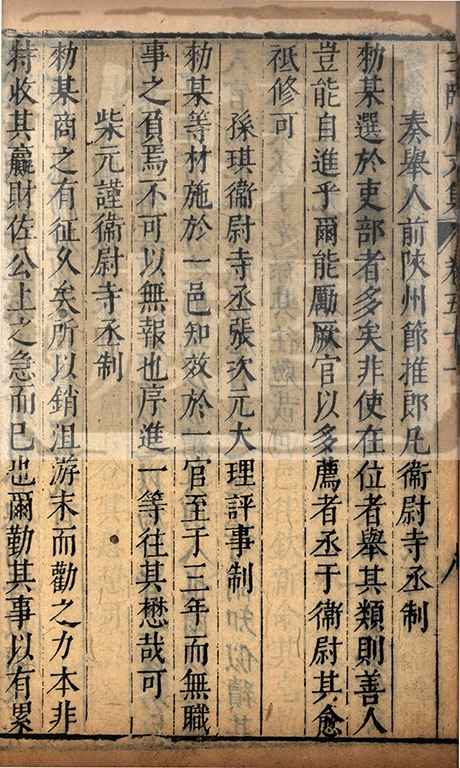 王臨川文集 卷五十一 八
奏舉人前陝州節推郎凡衞尉寺丞制
勑某選於吏部者多矣非使在位者舉其類則善人
豈能自進乎爾能勵厥官以多薦者丞于衞尉其愈
祗修可
孫琪衞尉寺丞張次元大理評事制
勑某等材施於一邑知效於一官至于三年而無職
事之負焉不可以無報也序進一等往其懋哉可
柴元謹衞尉寺丞制
勑某商之有征久矣所以銷沮游末而勸之力本非
特收其贏財佐公上之急而已也爾勤其事以有累